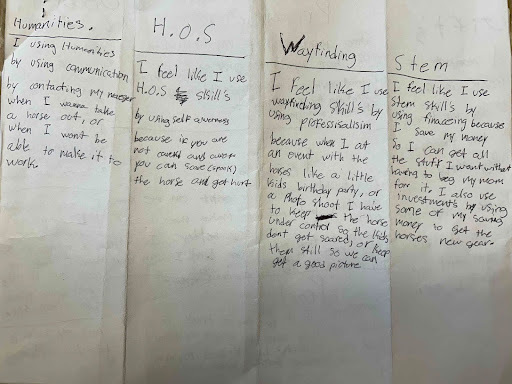 Humanities.
I using Humanities
by using communication
by contacting my
when I wanna take
a horse out, or
when I won't be
able to make it to
work.
H.O.S
I feel like I use
H.O.S skill's
by using self awerness
because if you are
not and awere
you can save (spook)
the horse and get hurt
Wayfinding
I Feel like I use
wayfinding skill's by
using professisalisim
because when I at
an event with the
horses like a little
kids birthday party, or
a photo shoot I have
to keep the horse
under control so the kids
dont get scared, or keep
them still so we can
get a good picture
Stem
I feel like I use
stem skill's by
using finacesing because
I save my money
so I can get all
the stuff I want without
having to beg my mom
for it, I also use
investments by using
some of my saving
money to get the
horses new gear.